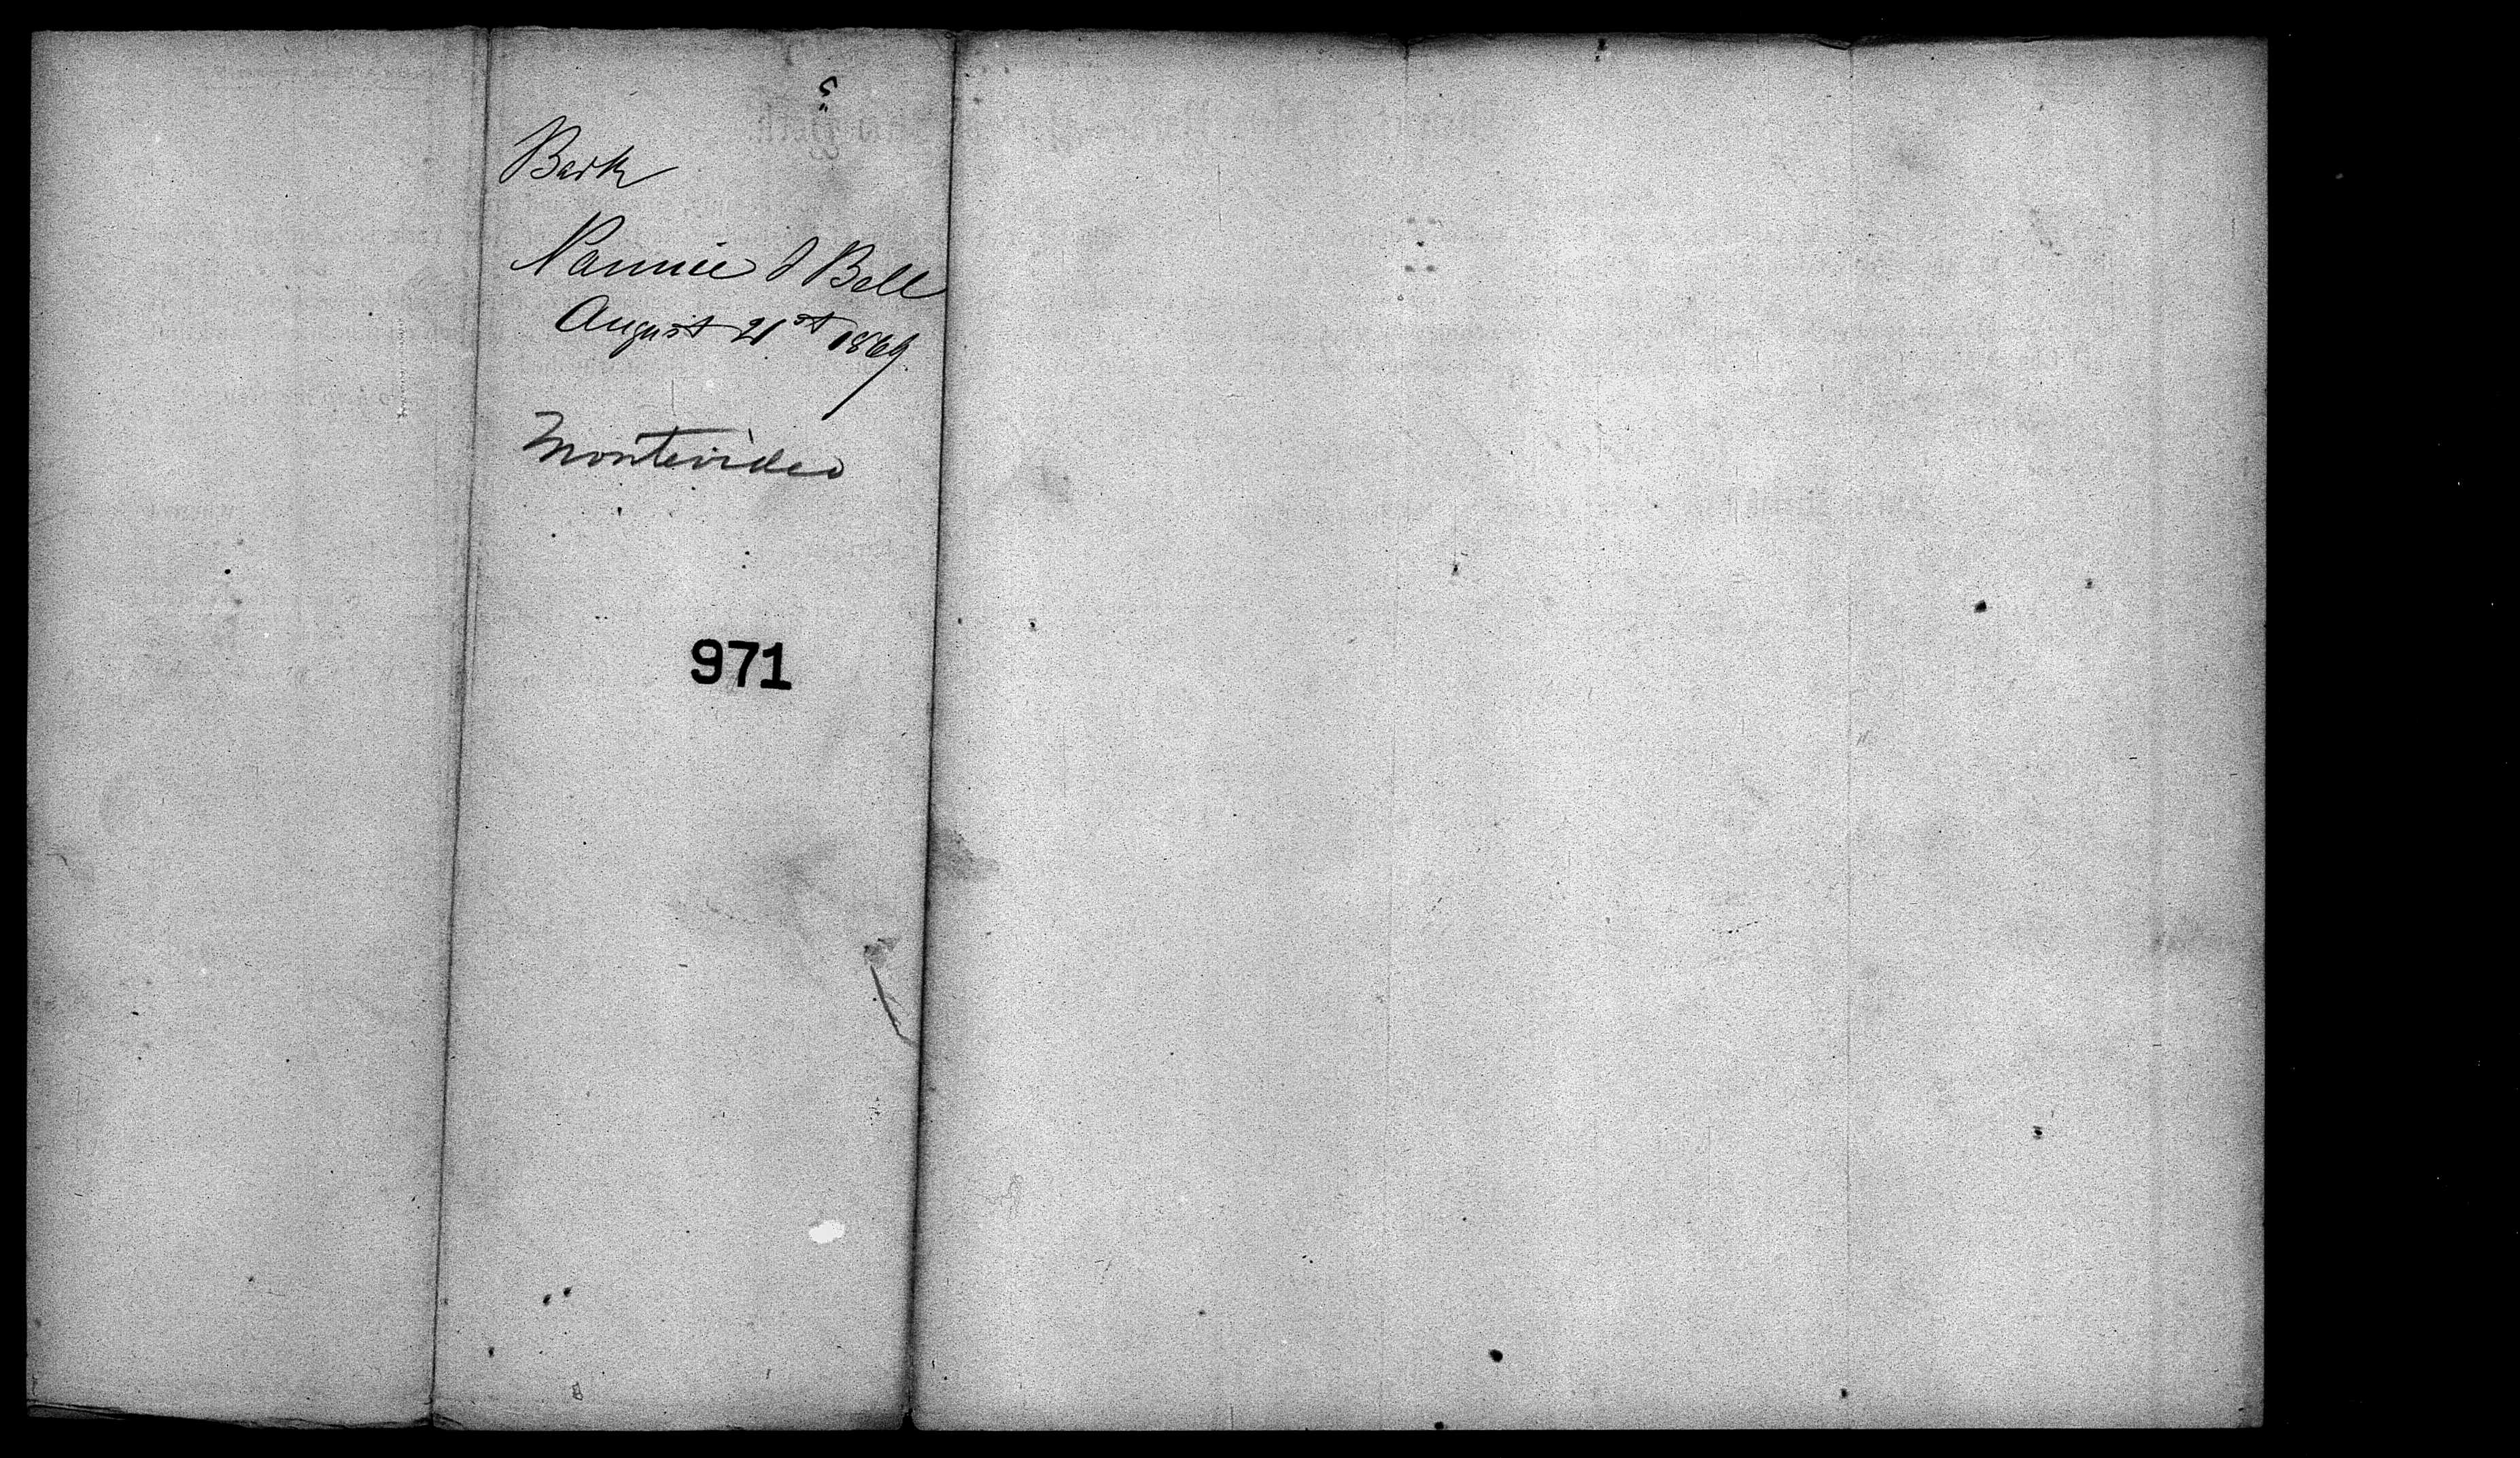 Bark
Nannie J Bell
August 21st 1869
Montevideo
971